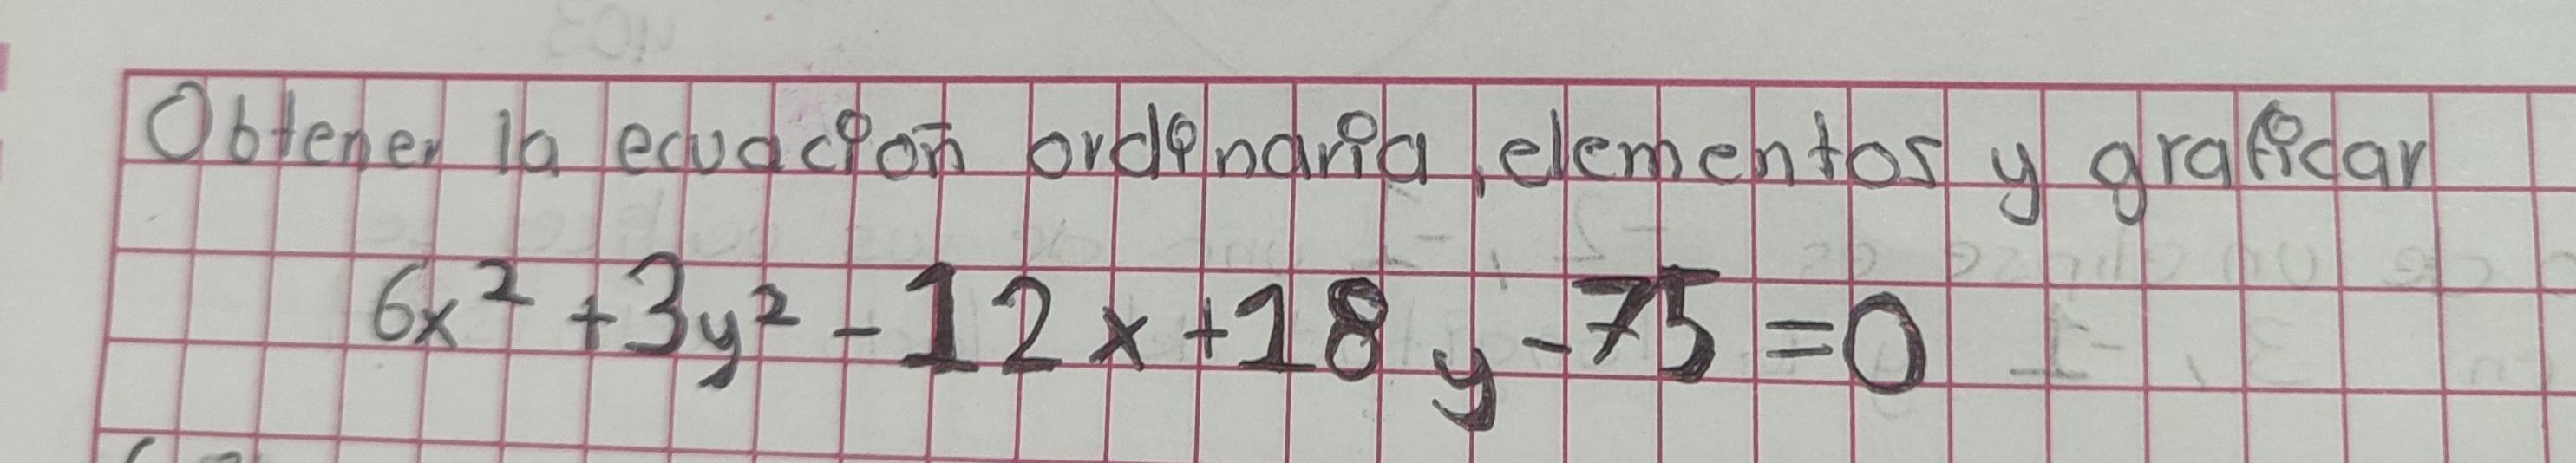 Obtener la ecuación ordinaria, elementos y graficar
6x² + 3y² - 12x + 18y - 75 = 0